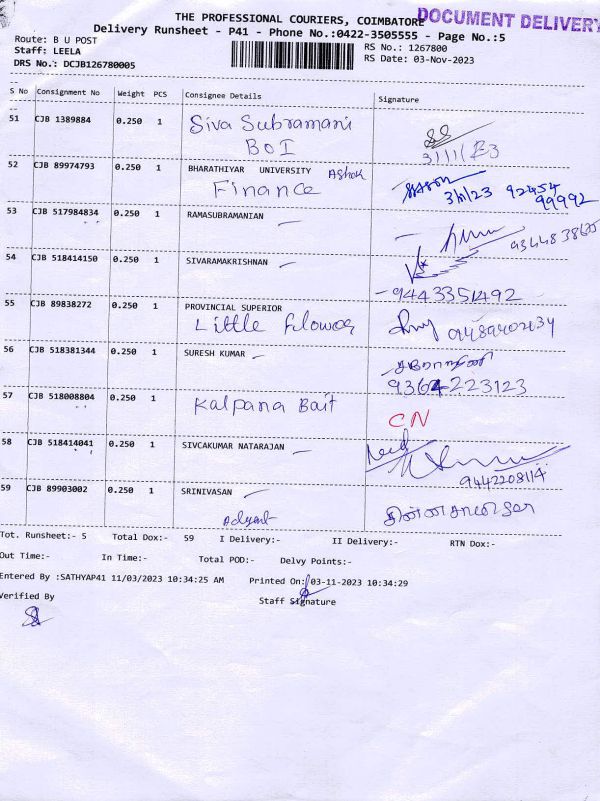 THE PROFESSIONAL COURIERS, COIMBATORE
DOCUMENT DELIVERY
Delivery Runsheet - P41 - Phone No.:0422-3505555 - Page No.:5
Route: B U POST
RS No.: 1267800
Staff: LEELA
RS Date: 03-Nov-2023
DRS No.: DCJB126780005
S No Consignment No Weight PCS Consignee Details Signature
51 CJB 1389884 0.250 1 Siva Subramani
BOI
3/11/23
52 CJB 89974793 0.250 1 BHARATHIYAR UNIVERSITY Ashok
Finance
3/11/23 92454
99992
53 CJB 517984834 0.250 1 RAMASUBRAMANIAN
54 CJB 518414150 0.250 1 SIVARAMAKRISHNAN
9443351492
55 CJB 89838272 0.250 1 PROVINCIAL SUPERIOR
Little Flower
56 CJB 518381344 0.250 1 SURESH KUMAR
9364223123
57 CJB 518008804 0.250 1 Kalpana Bait
CN
58 CJB 518414041 0.250 1 SIVCAKUMAR NATARAJAN
9442208114
59 CJB 89903002 0.250 1 SRINIVASAN
Tot. Runsheet:- 5 Total Dox:- 59 I Delivery:- II Delivery:- RTN Dox:-
Out Time:- In Time:- Total POD:- Delvy Points:-
Entered By :SATHYAP41 11/03/2023 10:34:25 AM Printed On:03-11-2023 10:34:29
Verified By Staff Signature